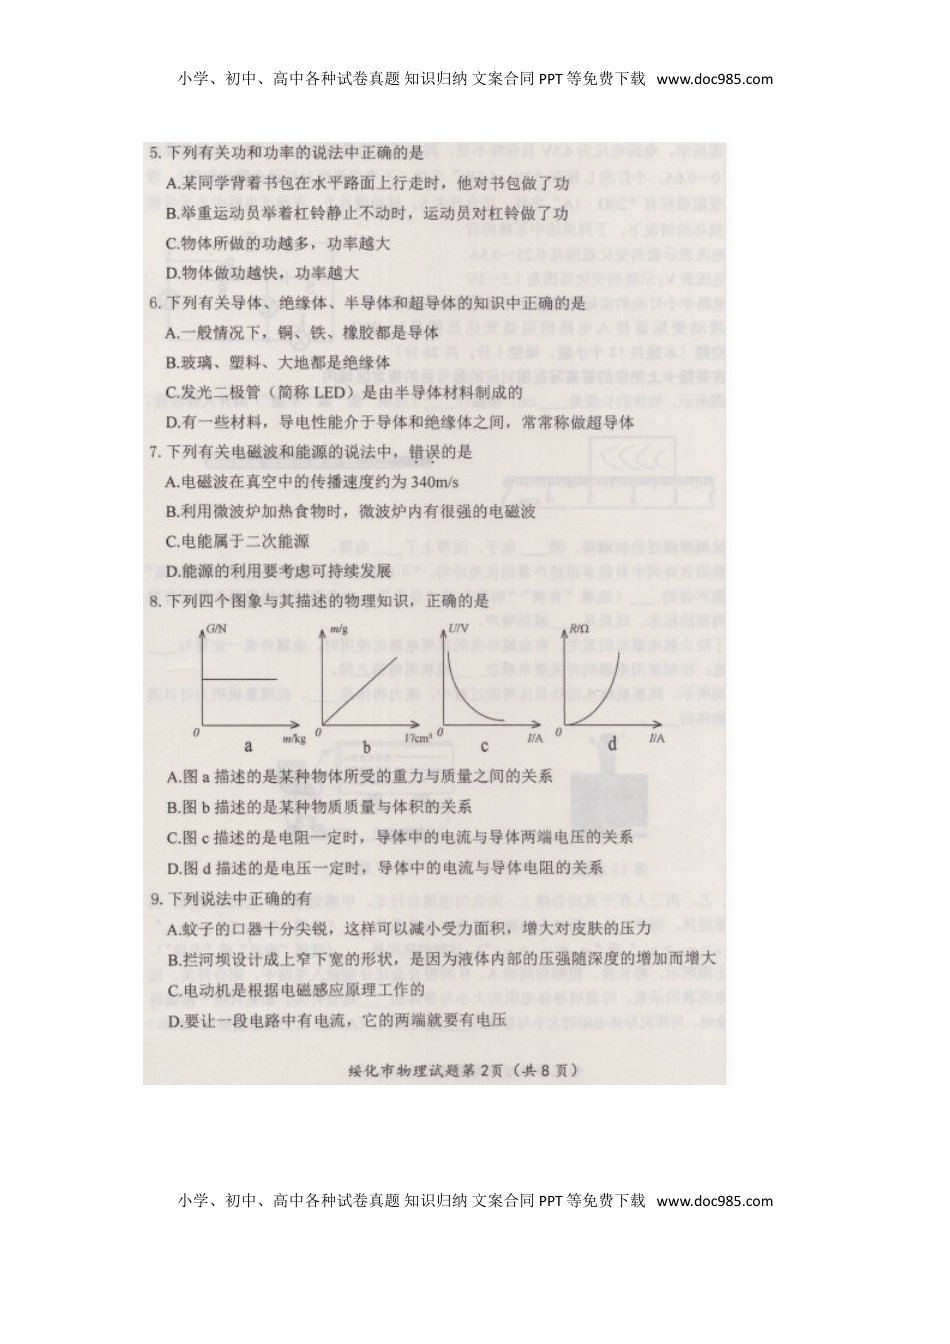 小学、初中、高中各种试卷真题 知识归纳 文案合同 PPT 等免费下载 www.doc985.com
5. 下列有关功和功率的说法中正确的是
A.某同学背着书包在水平路面上行走时，他对书包做了功
B.举重运动员举着杠铃静止不动时，运动员对杠铃做了功
C.物体所做的功越多，功率越大
D.物体做功越快，功率越大
6. 下列有关导体、绝缘体、半导体和超导体的知识中正确的是
A.一般情况下，铜、铁、橡胶都是导体
B.玻璃、塑料、大地都是绝缘体
C.发光二极管（简称 LED）是由半导体材料制成的
D.有一些材料，导电性能介于导体和绝缘体之间，常常称做超导体
7. 下列有关电磁波和能源的说法中，错误的是
A.电磁波在真空中的传播速度约为 340m/s
B.利用微波炉加热食物时，微波炉内有很强的电磁波
C.电能属于二次能源
D.能源的利用要考虑可持续发展
8. 下列四个图象与其描述的物理知识，正确的是
G/N m/g U/V R/Ω
0 m/kg 0 V/cm³ 0 I/A 0 I/A
a b c d
A.图 a 描述的是某种物体所受的重力与质量之间的关系
B.图 b 描述的是某种物质质量与体积的关系
C.图 c 描述的是电阻一定时，导体中的电流与导体两端电压的关系
D.图 d 描述的是电压一定时，导体中的电流与导体电阻的关系
9. 下列说法中正确的有
A.蚊子的口器十分尖锐，这样可以减小受力面积，增大对皮肤的压力
B.拦河坝设计成上窄下宽的形状，是因为液体内部的压强随深度的增加而增大
C.电动机是根据电磁感应原理工作的
D.要让一段电路中有电流，它的两端就要有电压
绥化市物理试题第 2页（共 8 页）
小学、初中、高中各种试卷真题 知识归纳 文案合同 PPT 等免费下载 www.doc985.com